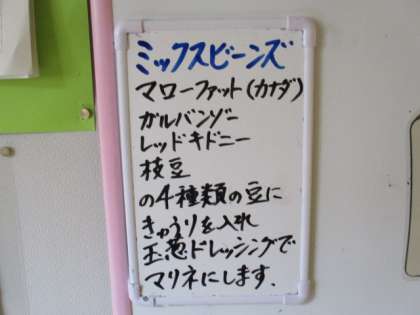 ミックスビーンズ
マローファット(カナダ)
ガルバンゾー
レッドキドニー
枝豆
の4種類の豆に
きゅうりを入れ
玉葱ドレッシングで
マリネにします.